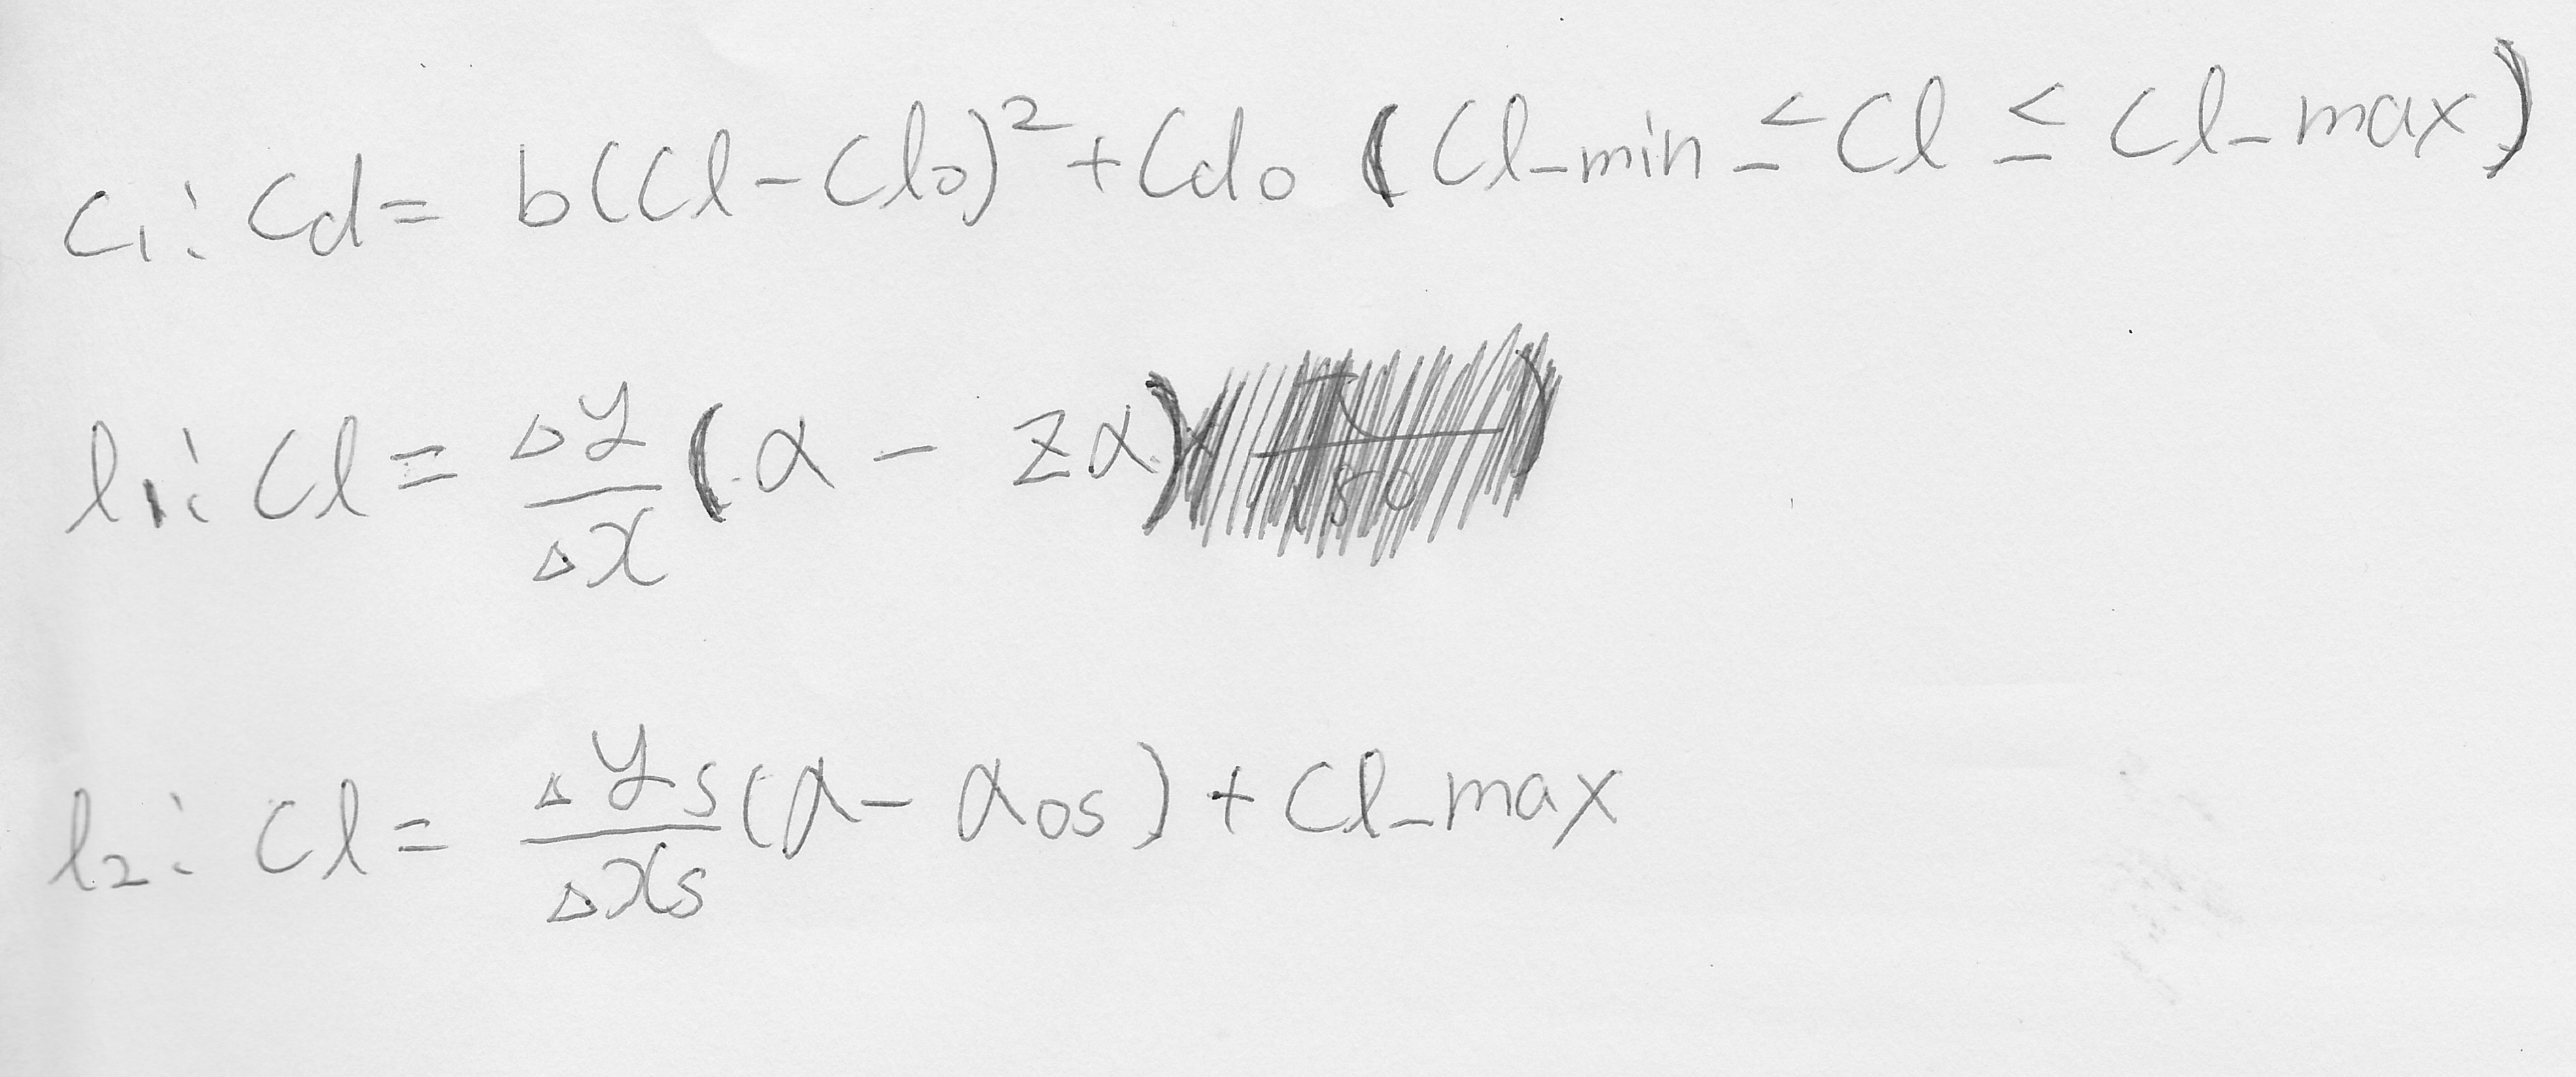 C₁: Cd = b(Cl - Cl₀)² + Cd₀ (Cl_min ≤ Cl ≤ Cl_max)
l₁: Cl = Δy/Δx (α - zα)
l₂: Cl = Δys/Δxs (α - α₀s) + Cl_max